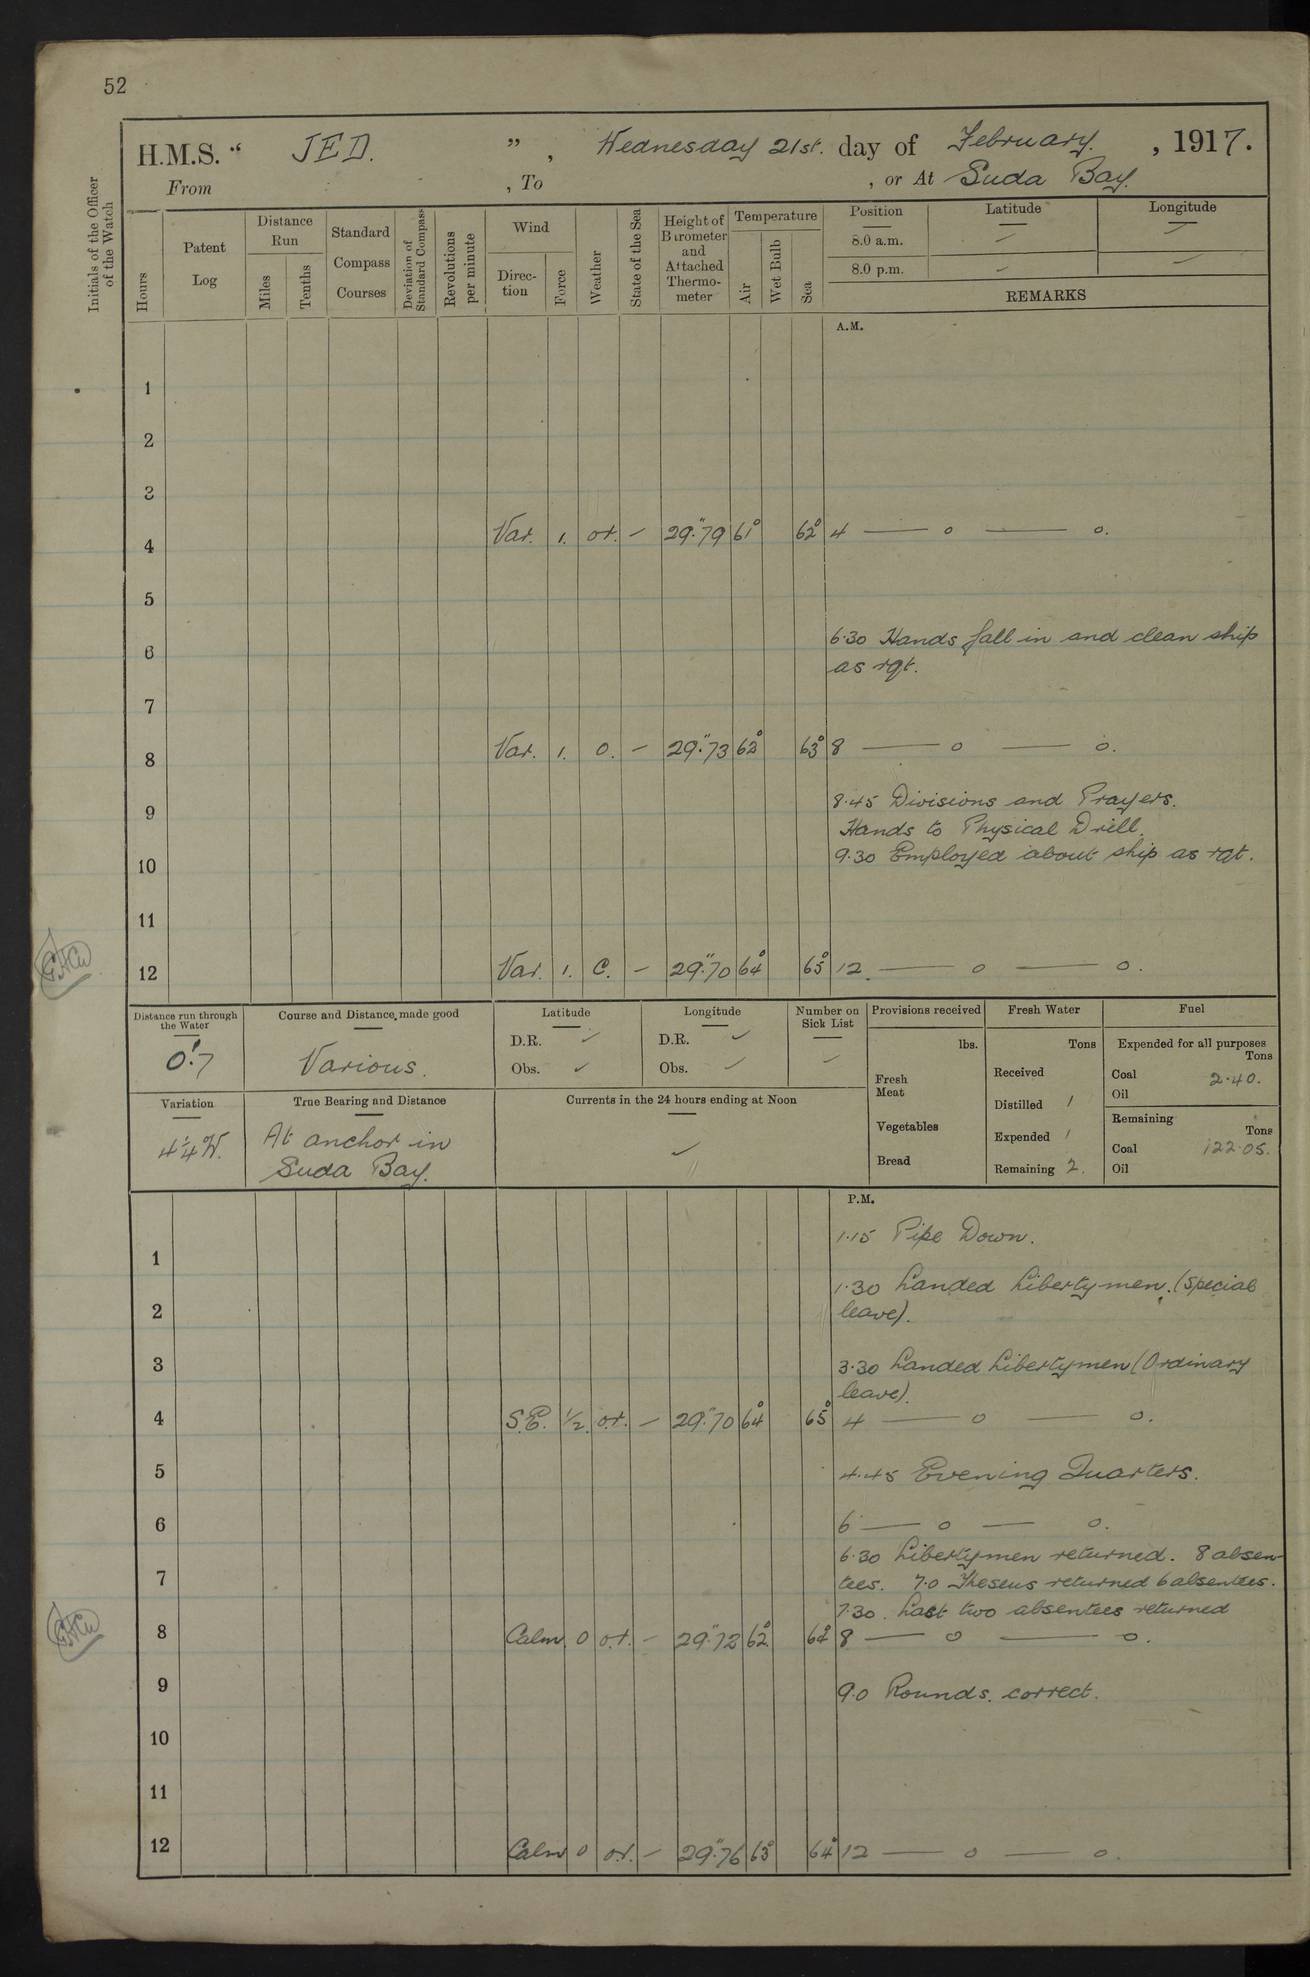 52
H.M.S. “ JED. ” , Wednesday 21st. day of February. , 1917.
From , To , or At Suda Bay.
Initials of the Officer of the Watch
Hours
Patent Log
Distance Run
Miles
Tenths
Standard Compass Courses
Deviation of Standard Compass
Revolutions per minute
Wind
Direc-tion
Force
Weather
State of the Sea
Height of Barometer and Attached Thermo-meter
Temperature
Air
Wet Bulb
Sea
Position Latitude Longitude
8.0 a.m. ✓ ✓
8.0 p.m. ✓ ✓
REMARKS
A.M.
1
2
3
4 Var. 1. or. – 29."79 61° 62° 4 — o — o.
5
6 6.30 Hands fall in and clean ship
as rqt.
7
8 Var. 1. o. – 29."73 62° 63° 8 — o — o.
9 8.45 Divisions and Prayers.
Hands to Physical Drill.
10 9.30 Employed about ship as rqt.
11
12 Var. 1. C. – 29."70 64° 65° 12. — o — o.
Distance run through the Water
0!7
Course and Distance made good
Various.
Latitude
D.R. ✓
Obs. ✓
Longitude
D.R. ✓
Obs. ✓
Number on Sick List
✓
Provisions received
lbs.
Fresh Meat
Vegetables
Bread
Fresh Water
Tons
Received
Distilled 1
Expended 1
Remaining 2.
Fuel
Expended for all purposes
Tons
Coal 2.40.
Oil
Remaining
Tons
Coal 122.05.
Oil
Variation
4¼ W.
True Bearing and Distance
At anchor in
Suda Bay.
Currents in the 24 hours ending at Noon
✓
P.M.
1 1.15 Pipe Down.
2 1.30 Landed Libertymen. (Special
leave).
3 3.30 Landed Libertymen (Ordinary
leave).
4 S.E. ½ o.r. – 29."70 64° 65° 4 — o — o.
5 4.45 Evening Quarters.
6 6 — o — o.
6.30 Libertymen returned. 8 absen-
7 tees. 7.0 Theseus returned 6 absentees.
7.30. Last two absentees returned
8 Calm. 0 o.r. – 29."72 62° 64° 8 — o — o.
9 9.0 Rounds. correct.
10
11
12 Calm 0 o.r. – 29."76 63° 64° 12 — o — o.